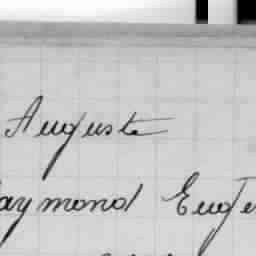 Auguste
aymond Euge